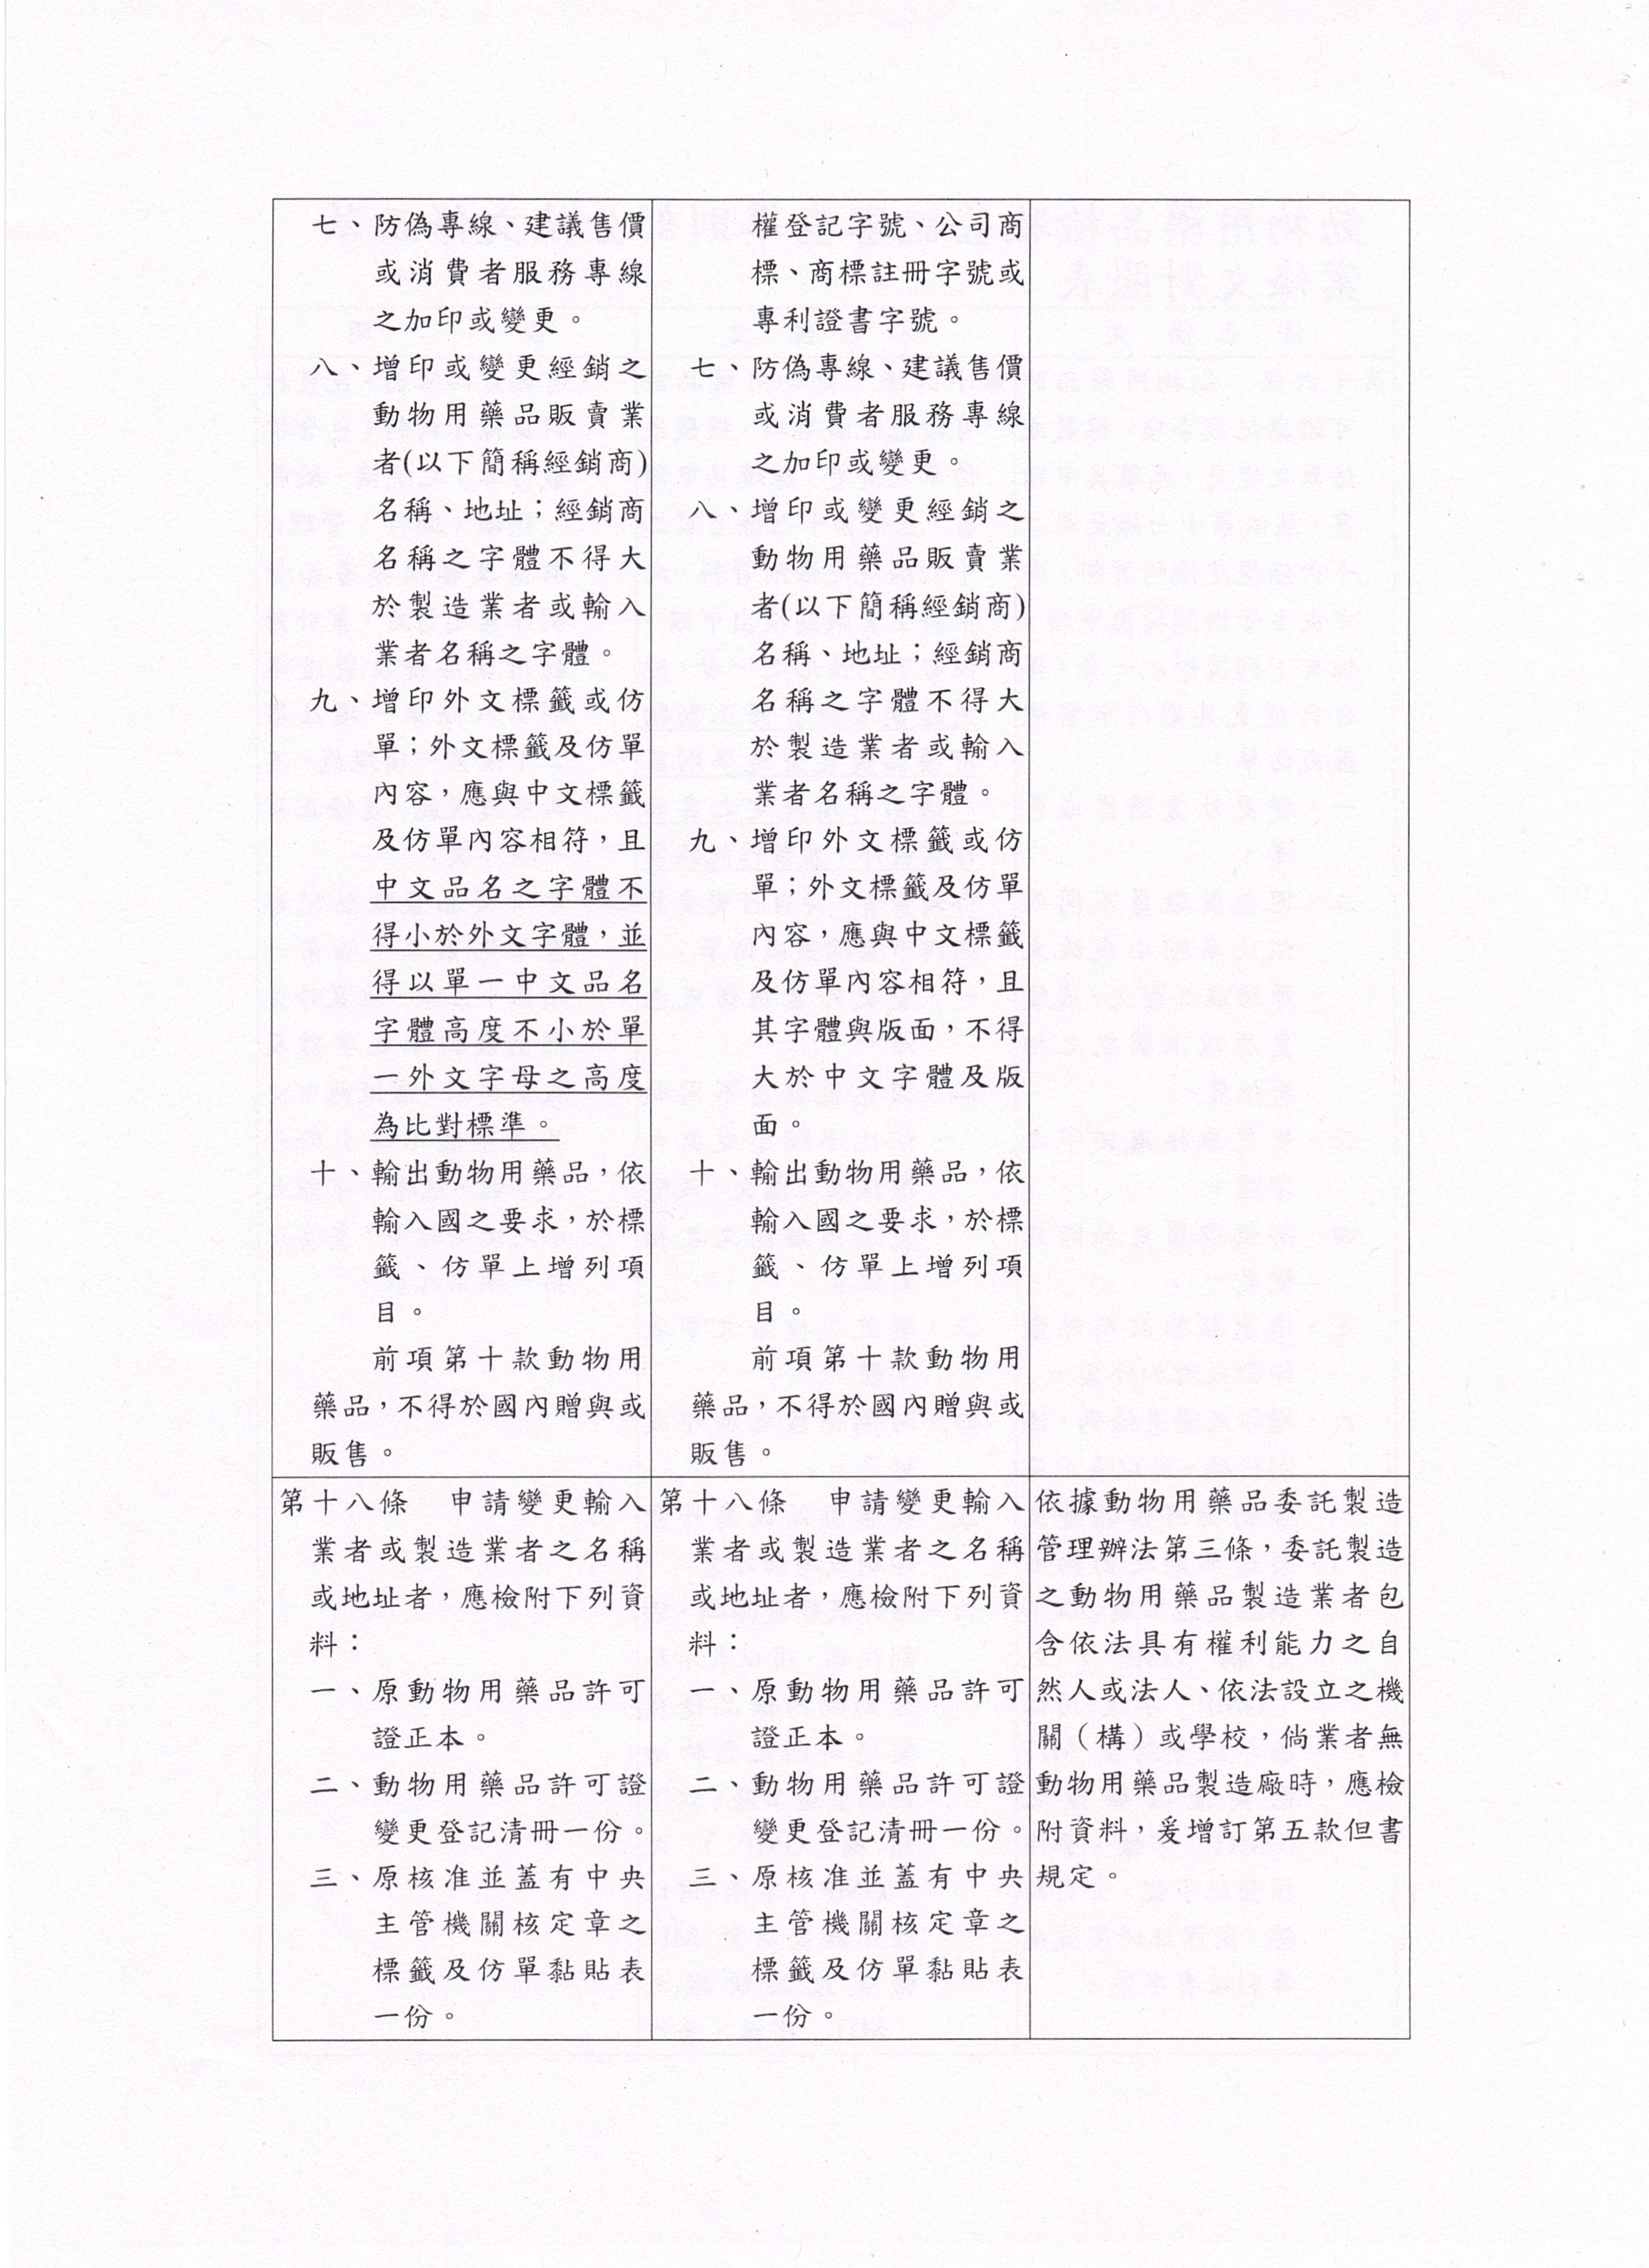 七、防偽專線、建議售價
或消費者服務專線
之加印或變更。
八、增印或變更經銷之
動物用藥品販賣業
者(以下簡稱經銷商)
名稱、地址；經銷商
名稱之字體不得大
於製造業者或輸入
業者名稱之字體。
九、增印外文標籤或仿
單；外文標籤及仿單
內容，應與中文標籤
及仿單內容相符，且
中文品名之字體不
得小於外文字體，並
得以單一中文品名
字體高度不小於單
一外文字母之高度
為比對標準。
十、輸出動物用藥品，依
輸入國之要求，於標
籤、仿單上增列項
目。
前項第十款動物用
藥品，不得於國內贈與或
販售。
權登記字號、公司商
標、商標註冊字號或
專利證書字號。
七、防偽專線、建議售價
或消費者服務專線
之加印或變更。
八、增印或變更經銷之
動物用藥品販賣業
者(以下簡稱經銷商)
名稱、地址；經銷商
名稱之字體不得大
於製造業者或輸入
業者名稱之字體。
九、增印外文標籤或仿
單；外文標籤及仿單
內容，應與中文標籤
及仿單內容相符，且
其字體與版面，不得
大於中文字體及版
面。
十、輸出動物用藥品，依
輸入國之要求，於標
籤、仿單上增列項
目。
前項第十款動物用
藥品，不得於國內贈與或
販售。
第十八條　申請變更輸入
業者或製造業者之名稱
或地址者，應檢附下列資
料：
一、原動物用藥品許可
證正本。
二、動物用藥品許可證
變更登記清冊一份。
三、原核准並蓋有中央
主管機關核定章之
標籤及仿單黏貼表
一份。
第十八條　申請變更輸入
業者或製造業者之名稱
或地址者，應檢附下列資
料：
一、原動物用藥品許可
證正本。
二、動物用藥品許可證
變更登記清冊一份。
三、原核准並蓋有中央
主管機關核定章之
標籤及仿單黏貼表
一份。
依據動物用藥品委託製造
管理辦法第三條，委託製造
之動物用藥品製造業者包
含依法具有權利能力之自
然人或法人、依法設立之機
關（構）或學校，倘業者無
動物用藥品製造廠時，應檢
附資料，爰增訂第五款但書
規定。